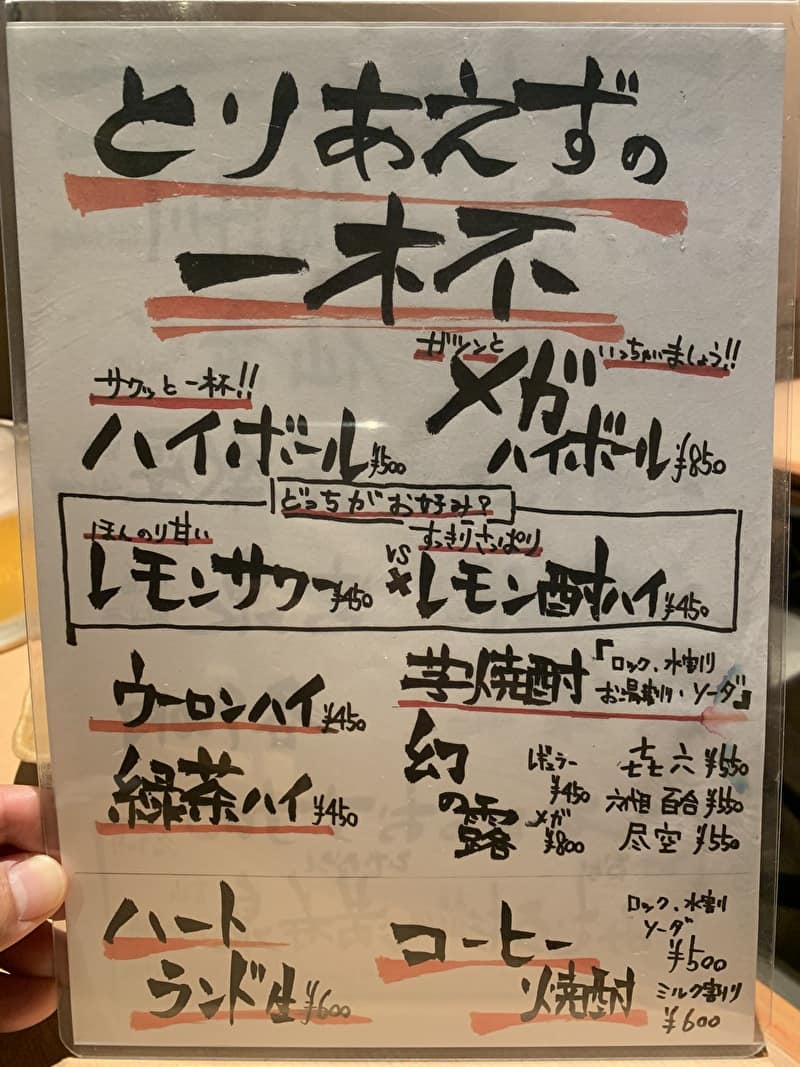 とりあえずの
一杯
サクッと一杯!!
ハイボール ¥500
ガツンと
いっちゃいましょう!!
メガ
ハイボール ¥850
どっちがお好み?
ほんのり甘い
レモンサワー ¥450
VS
すっきりさっぱり
レモン酎ハイ ¥450
ウーロンハイ ¥450
緑茶ハイ ¥450
芋焼酎
「ロック、水割り
お湯割り・ソーダ」
幻
の露
レギュラー
¥450
メガ
¥800
㐂六 ¥550
百合 ¥550
尽空 ¥550
ハート
ランド生 ¥600
コーヒー
焼酎
ロック、水割
ソーダ
¥500
ミルク割り
¥600